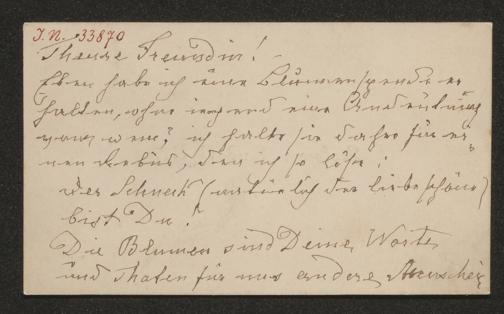 I.N. 33870
Theure Freundin!
Eben habe ich eine Blumenspende er
halten, ohne irgend eine Andeutung
von wem? ich halte sie daher für ei
nen Rebus, den ich so löse:
der Schmuck (natürlich der liebe schöne)
bist Du!
Die Blumen sind Deine Worte
und Thaten für uns andere Menschen